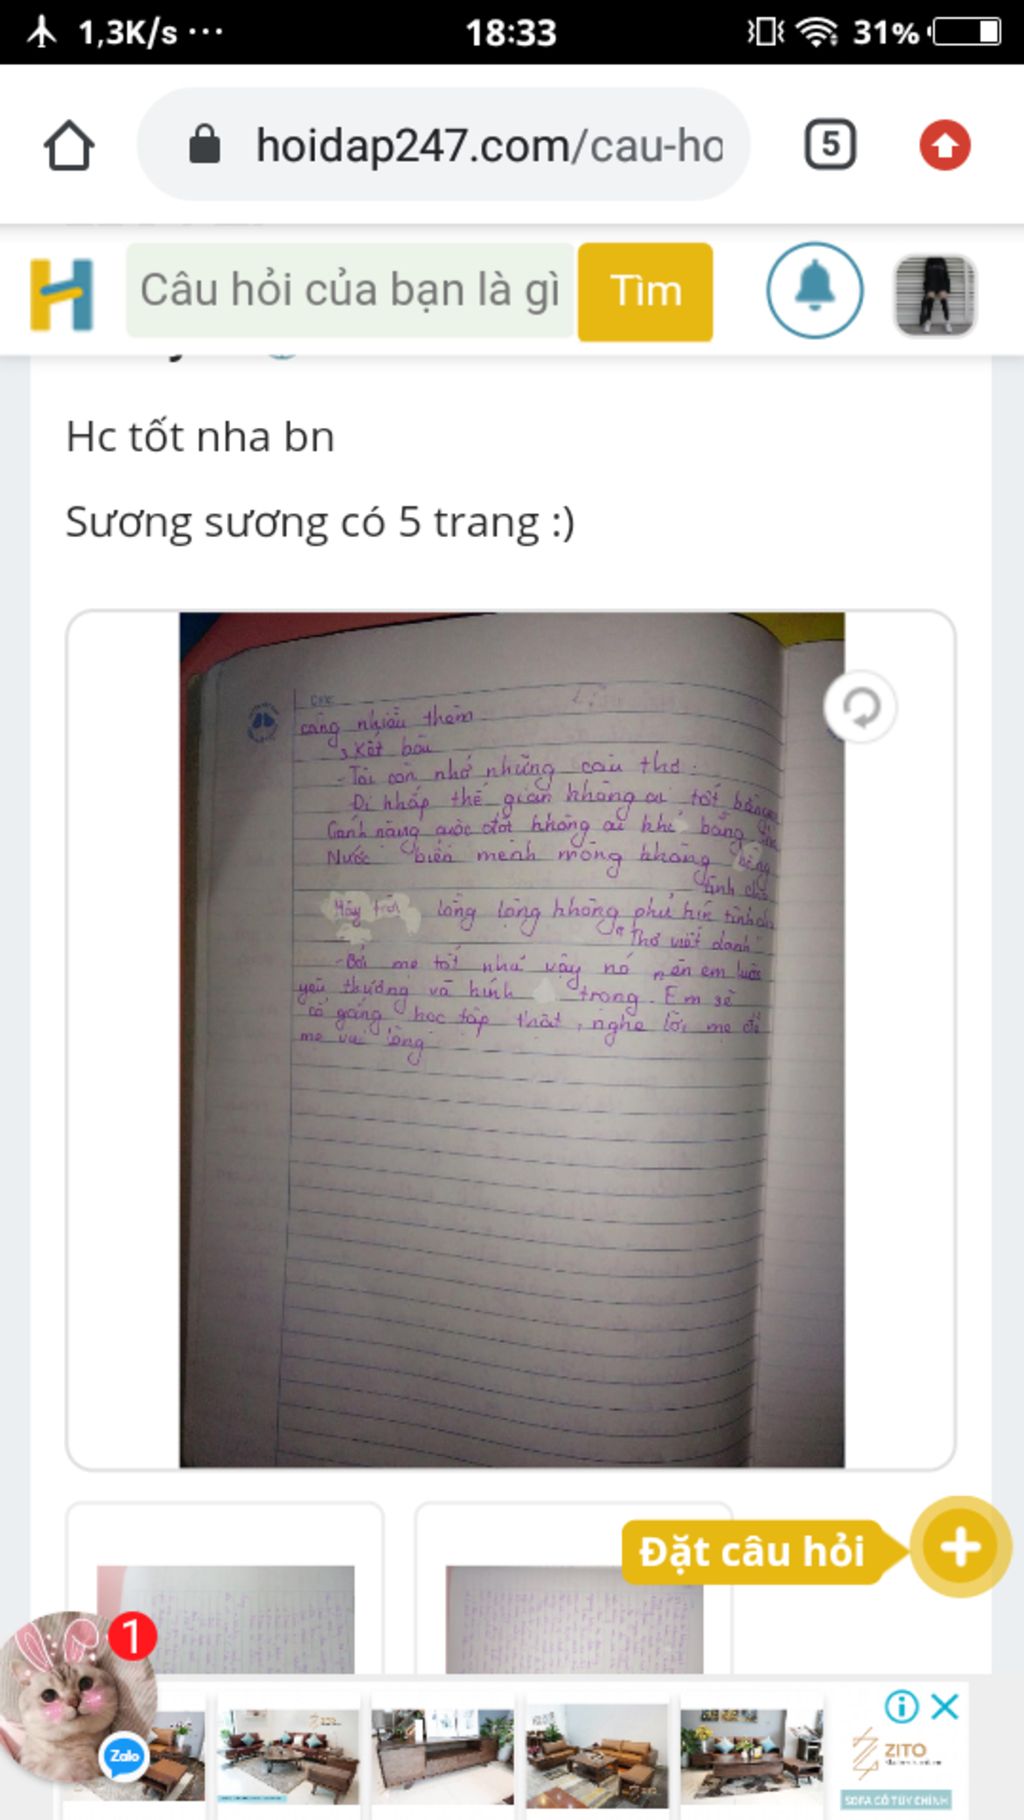 1,3K/s ... 18:33 31%
hoidap247.com/cau-ho 5
H Câu hỏi của bạn là gì Tìm
Hc tốt nha bn
Sương sương có 5 trang :)
Date
càng nhiều thêm
3, Kết bài
- Tôi còn nhớ những câu thơ:
Đi khắp thế gian không ai tốt bằng
Gánh nặng cuộc đời không ai khổ bằng
Nước biển mênh mông không
tình cha
Mây trời lồng lộng không phủ kín tình cha
"Thơ viết danh"
- Bởi mẹ tốt như vậy nó nên em luôn
yêu thương và kính trọng. Em sẽ
cố gắng học tập thật, nghe lời mẹ để
mẹ vui lòng
Đặt câu hỏi +
1
Zalo
ZITO
SOFA CÓ TÙY CHỈNH